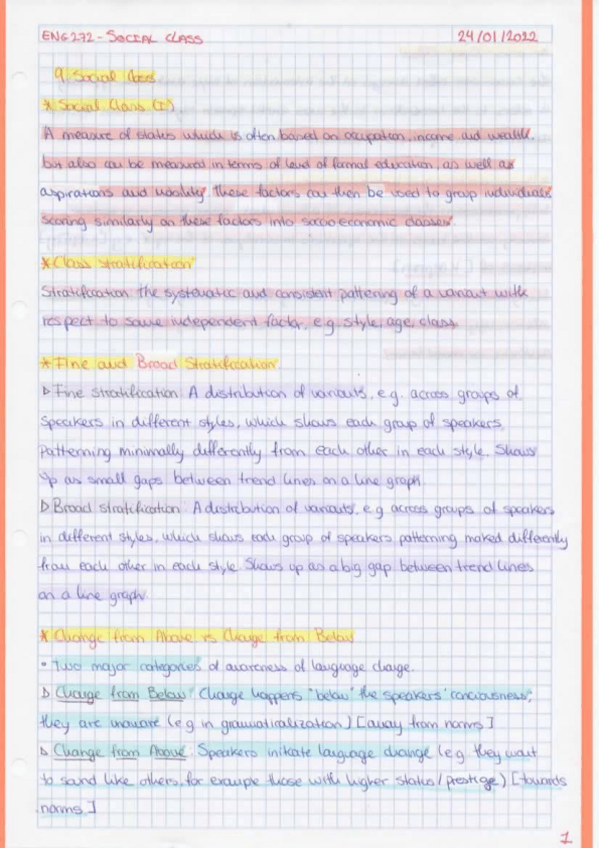 ENG272 - SOCIAL CLASS 24/01/2022
9. Social Class
* Social Class (I)
A measure of status which is often based on occupation, income and wealth,
but also can be measured in terms of level of formal education, as well as
aspirations and mobility. These factors can then be used to group individuals
scoring similarly on these factors into socioeconomic classes.
* Class stratification
Stratification: the systematic and consistent patterning of a variant with
respect to some independent factor, e.g. style, age, class.
* Fine and Broad Stratification
▷ Fine stratification: A distribution of variants, e.g. across groups of
speakers in different styles, which shows each group of speakers
patterning minimally differently from each other in each style. Shows
up as small gaps between trend lines on a line graph.
▷ Broad stratification: A distribution of variants, e.g across groups of speakers
in different styles, which shows each group of speakers patterning maked differently
from each other in each style. Shows up as a big gap between trend lines
on a line graph.
* Change from Above vs Change from Below
• Two major categories of awareness of language change.
▷ Change from Below: Change happens "below" the speakers' conciousness,
they are unaware (e.g in grammaticalization) [away from norms]
▷ Change from Above: Speakers initiate language change (e.g they want
to sound like others, for example those with higher status/prestige) [towards
norms]
1